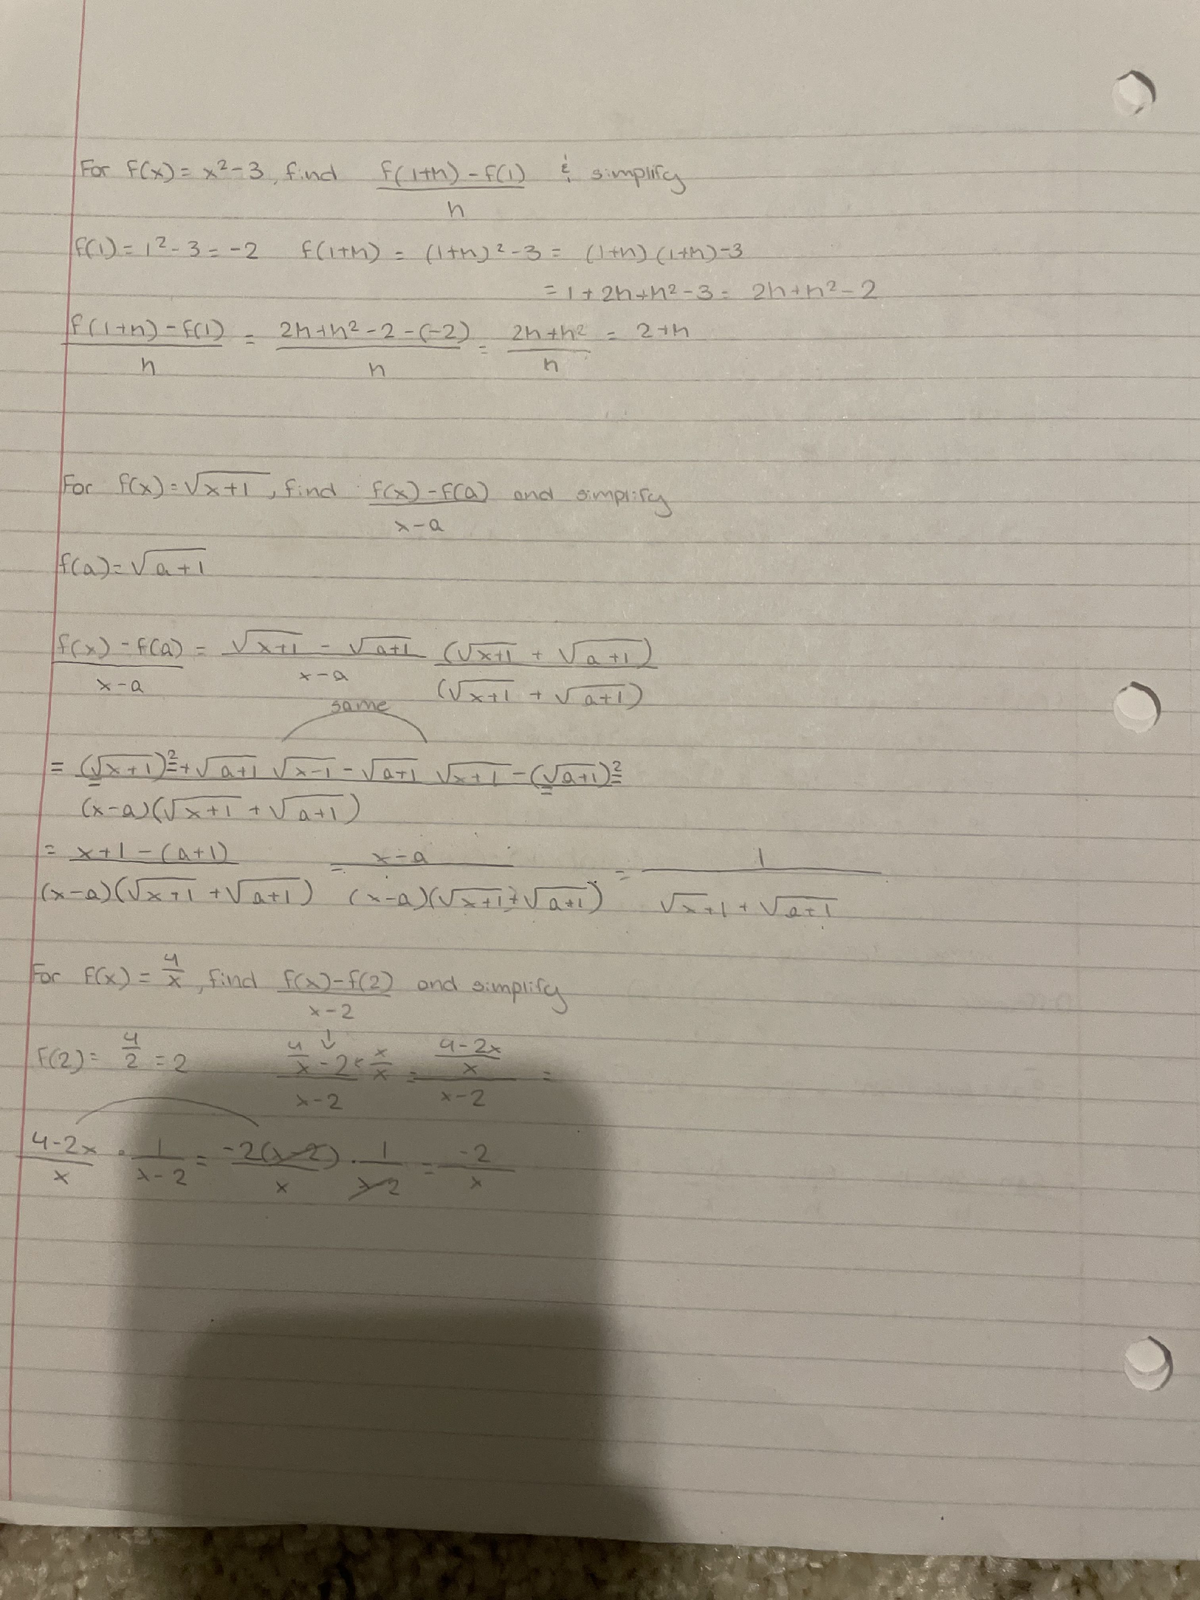 For f(x) = x² - 3, find f(1+h) - f(1) / h & simplify
f(1) = 1² - 3 = -2 f(1+h) = (1+h)² - 3 = (1+h)(1+h) - 3
= 1 + 2h + h² - 3 = 2h + h² - 2
f(1+h) - f(1) / h = 2h + h² - 2 - (-2) / h = 2h + h² / h = 2 + h
For f(x) = √x+1, find f(x) - f(a) / x - a and simplify
f(a) = √a+1
f(x) - f(a) / x - a = √x+1 - √a+1 / x - a (√x+1 + √a+1) / (√x+1 + √a+1)
same
= (√x+1)² + √a+1 √x-1 - √a+1 √x+1 - (√a+1)² / (x-a)(√x+1 + √a+1)
= x+1 - (a+1) / (x-a)(√x+1 + √a+1) = x-a / (x-a)(√x+1 + √a+1) = 1 / √x+1 + √a+1
For f(x) = 4/x, find f(x) - f(2) / x - 2 and simplify
f(2) = 4/2 = 2 4/x - 2 · x/x / x - 2 = 4-2x/x / x - 2 =
4-2x / x · 1 / x-2 = -2(x-2) / x · 1 / x-2 = -2 / x